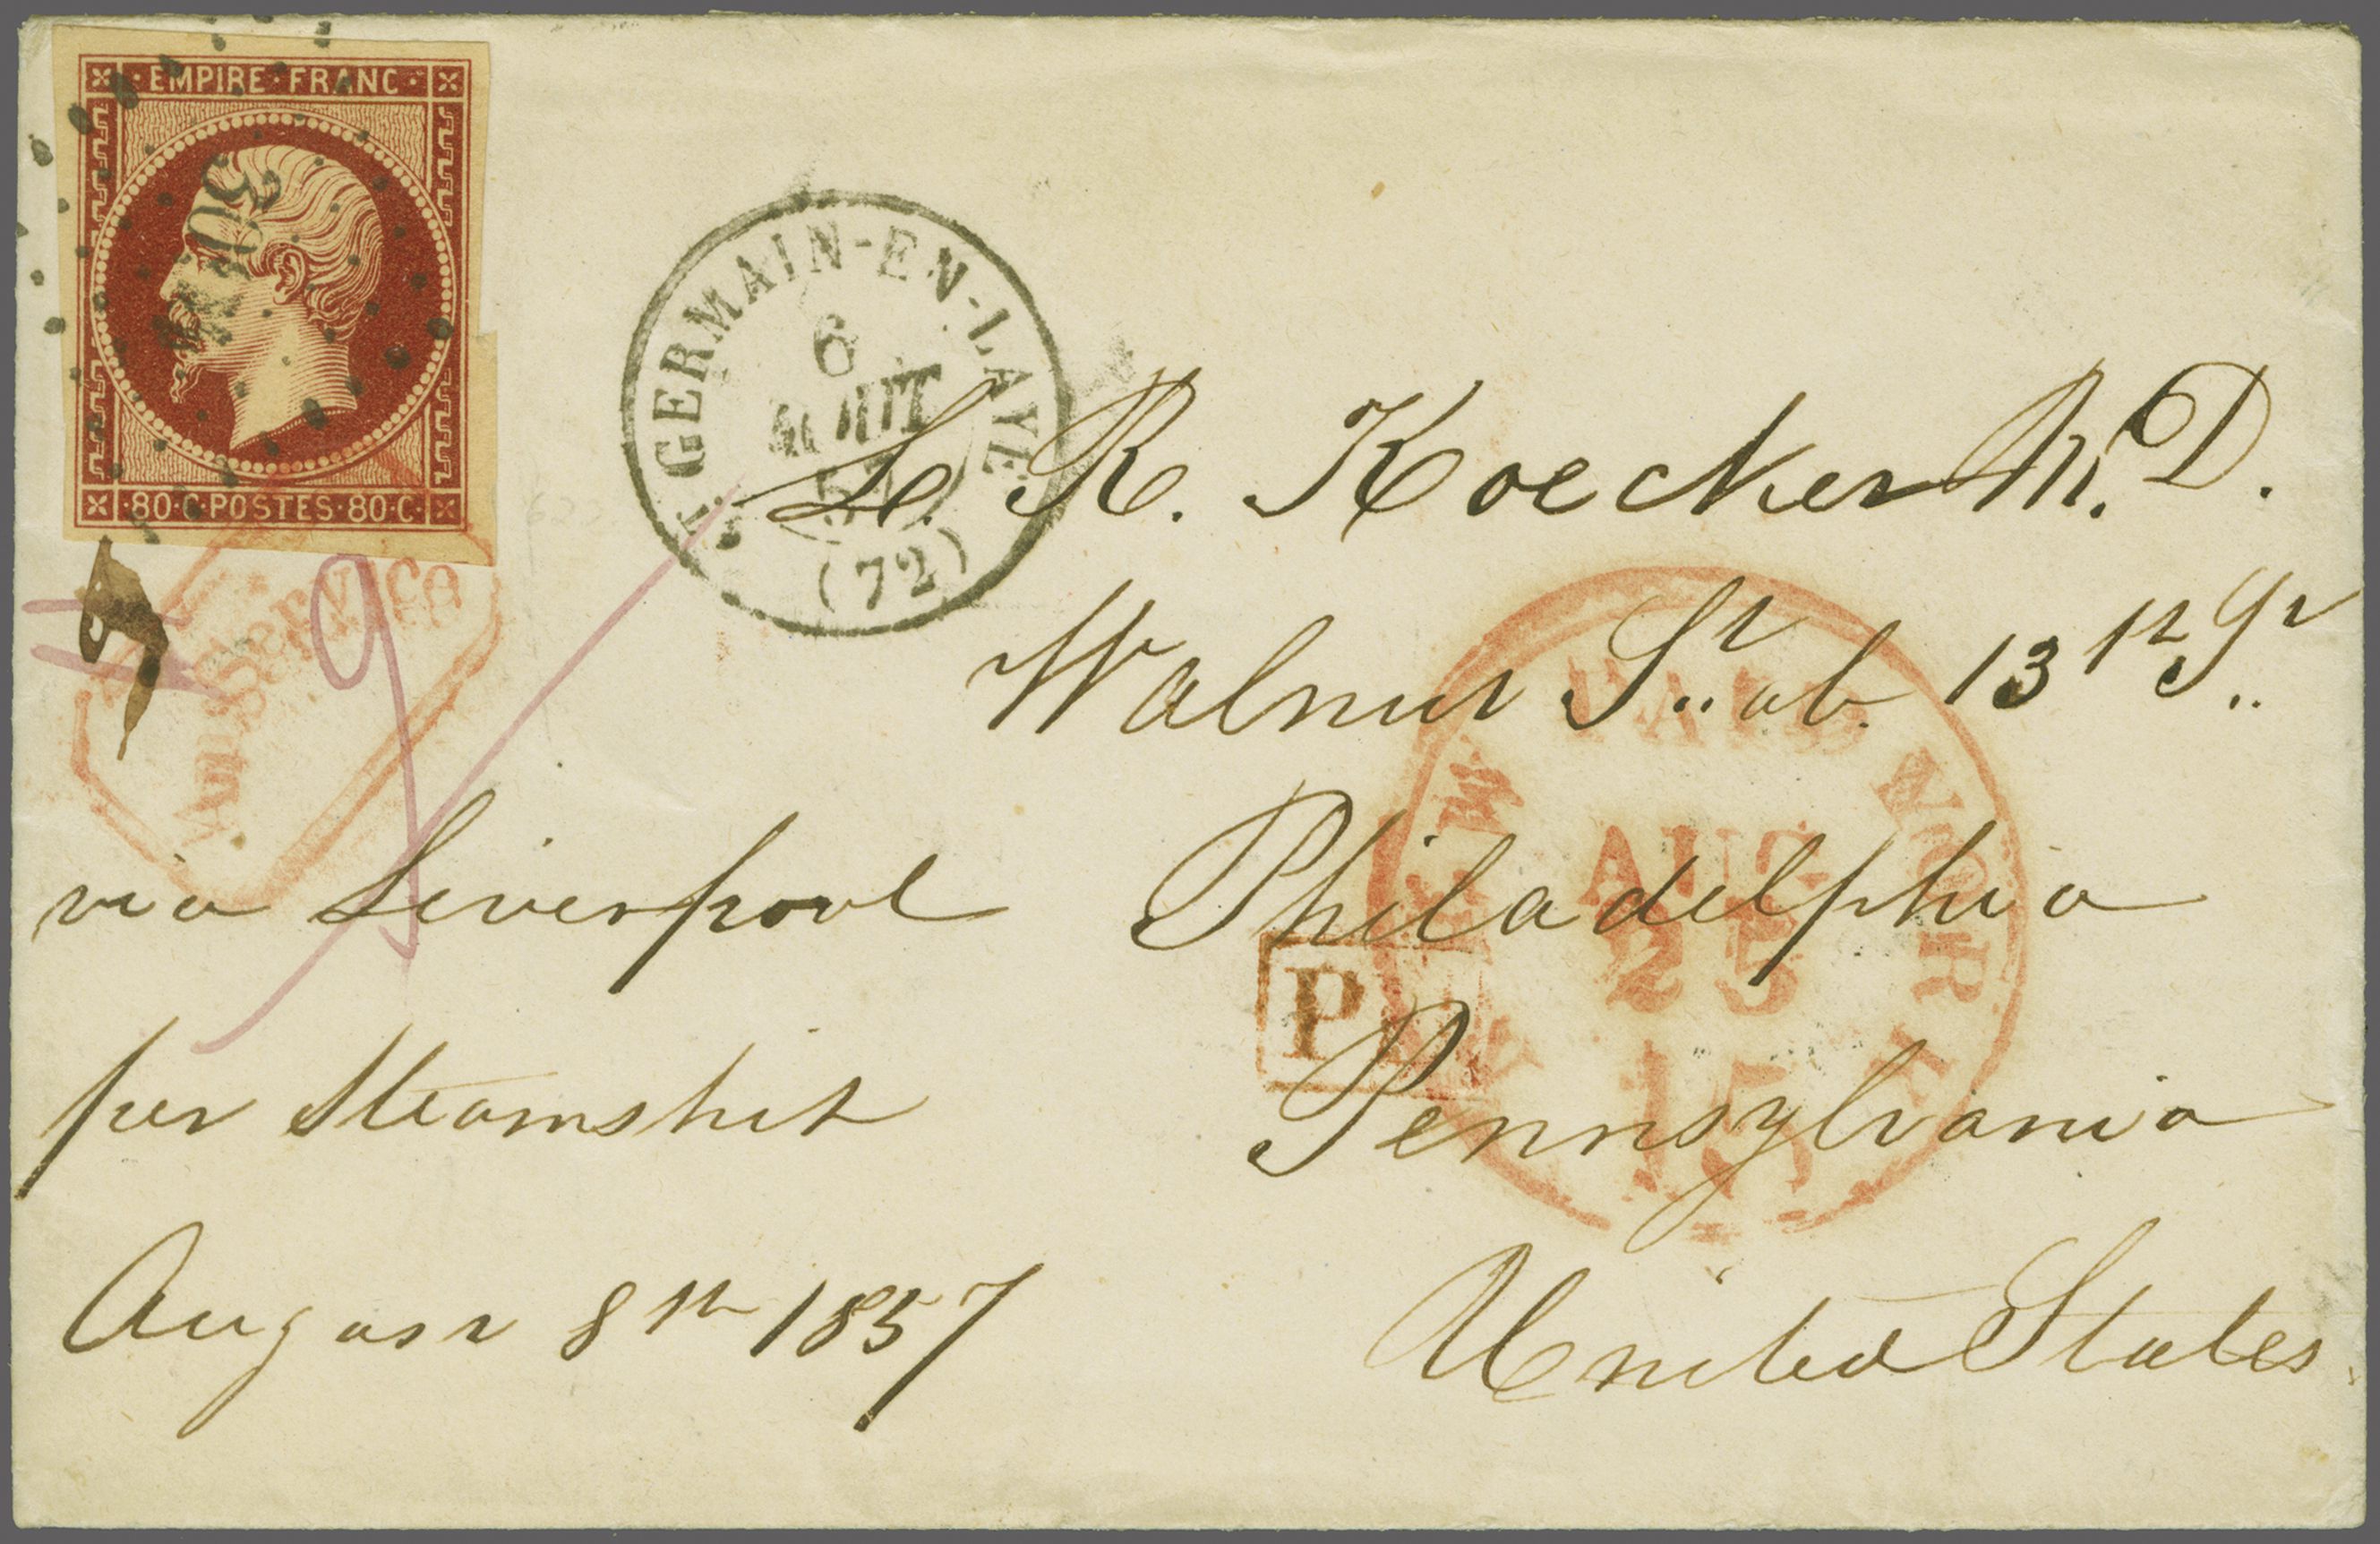 · EMPIRE · FRANC ·
· 80 · C · POSTES · 80 · C ·
ST. GERMAIN-EN-LAYE
6
AOUT
57
(72)
L. R. Koecker M.D.
Walnut St. ab. 13th St.
Philadelphia
Pennsylvania
United States.
via Liverpool
per Steamship
August 8th 1857
9
Service
PAID
NEW YORK
AUG
25
15
P